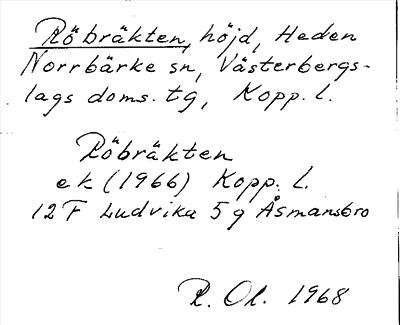 Röbräkten, höjd, Heden
Norrbärke sn, Västerbergs-
lags doms. tg, Kopp. l.
Röbräkten
ek (1966) Kopp. L.
12 F Ludvika 5 g Åsmansbo
R. Ol. 1968